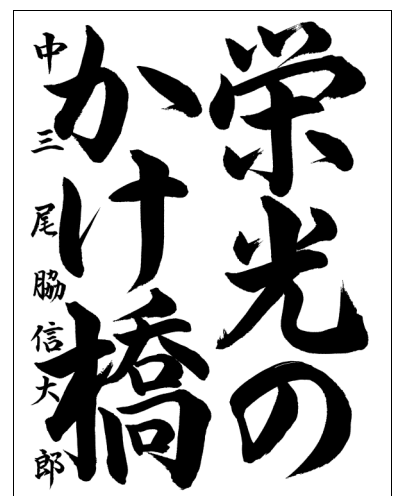 栄光の
かけ橋
中三 尾脇信太郎